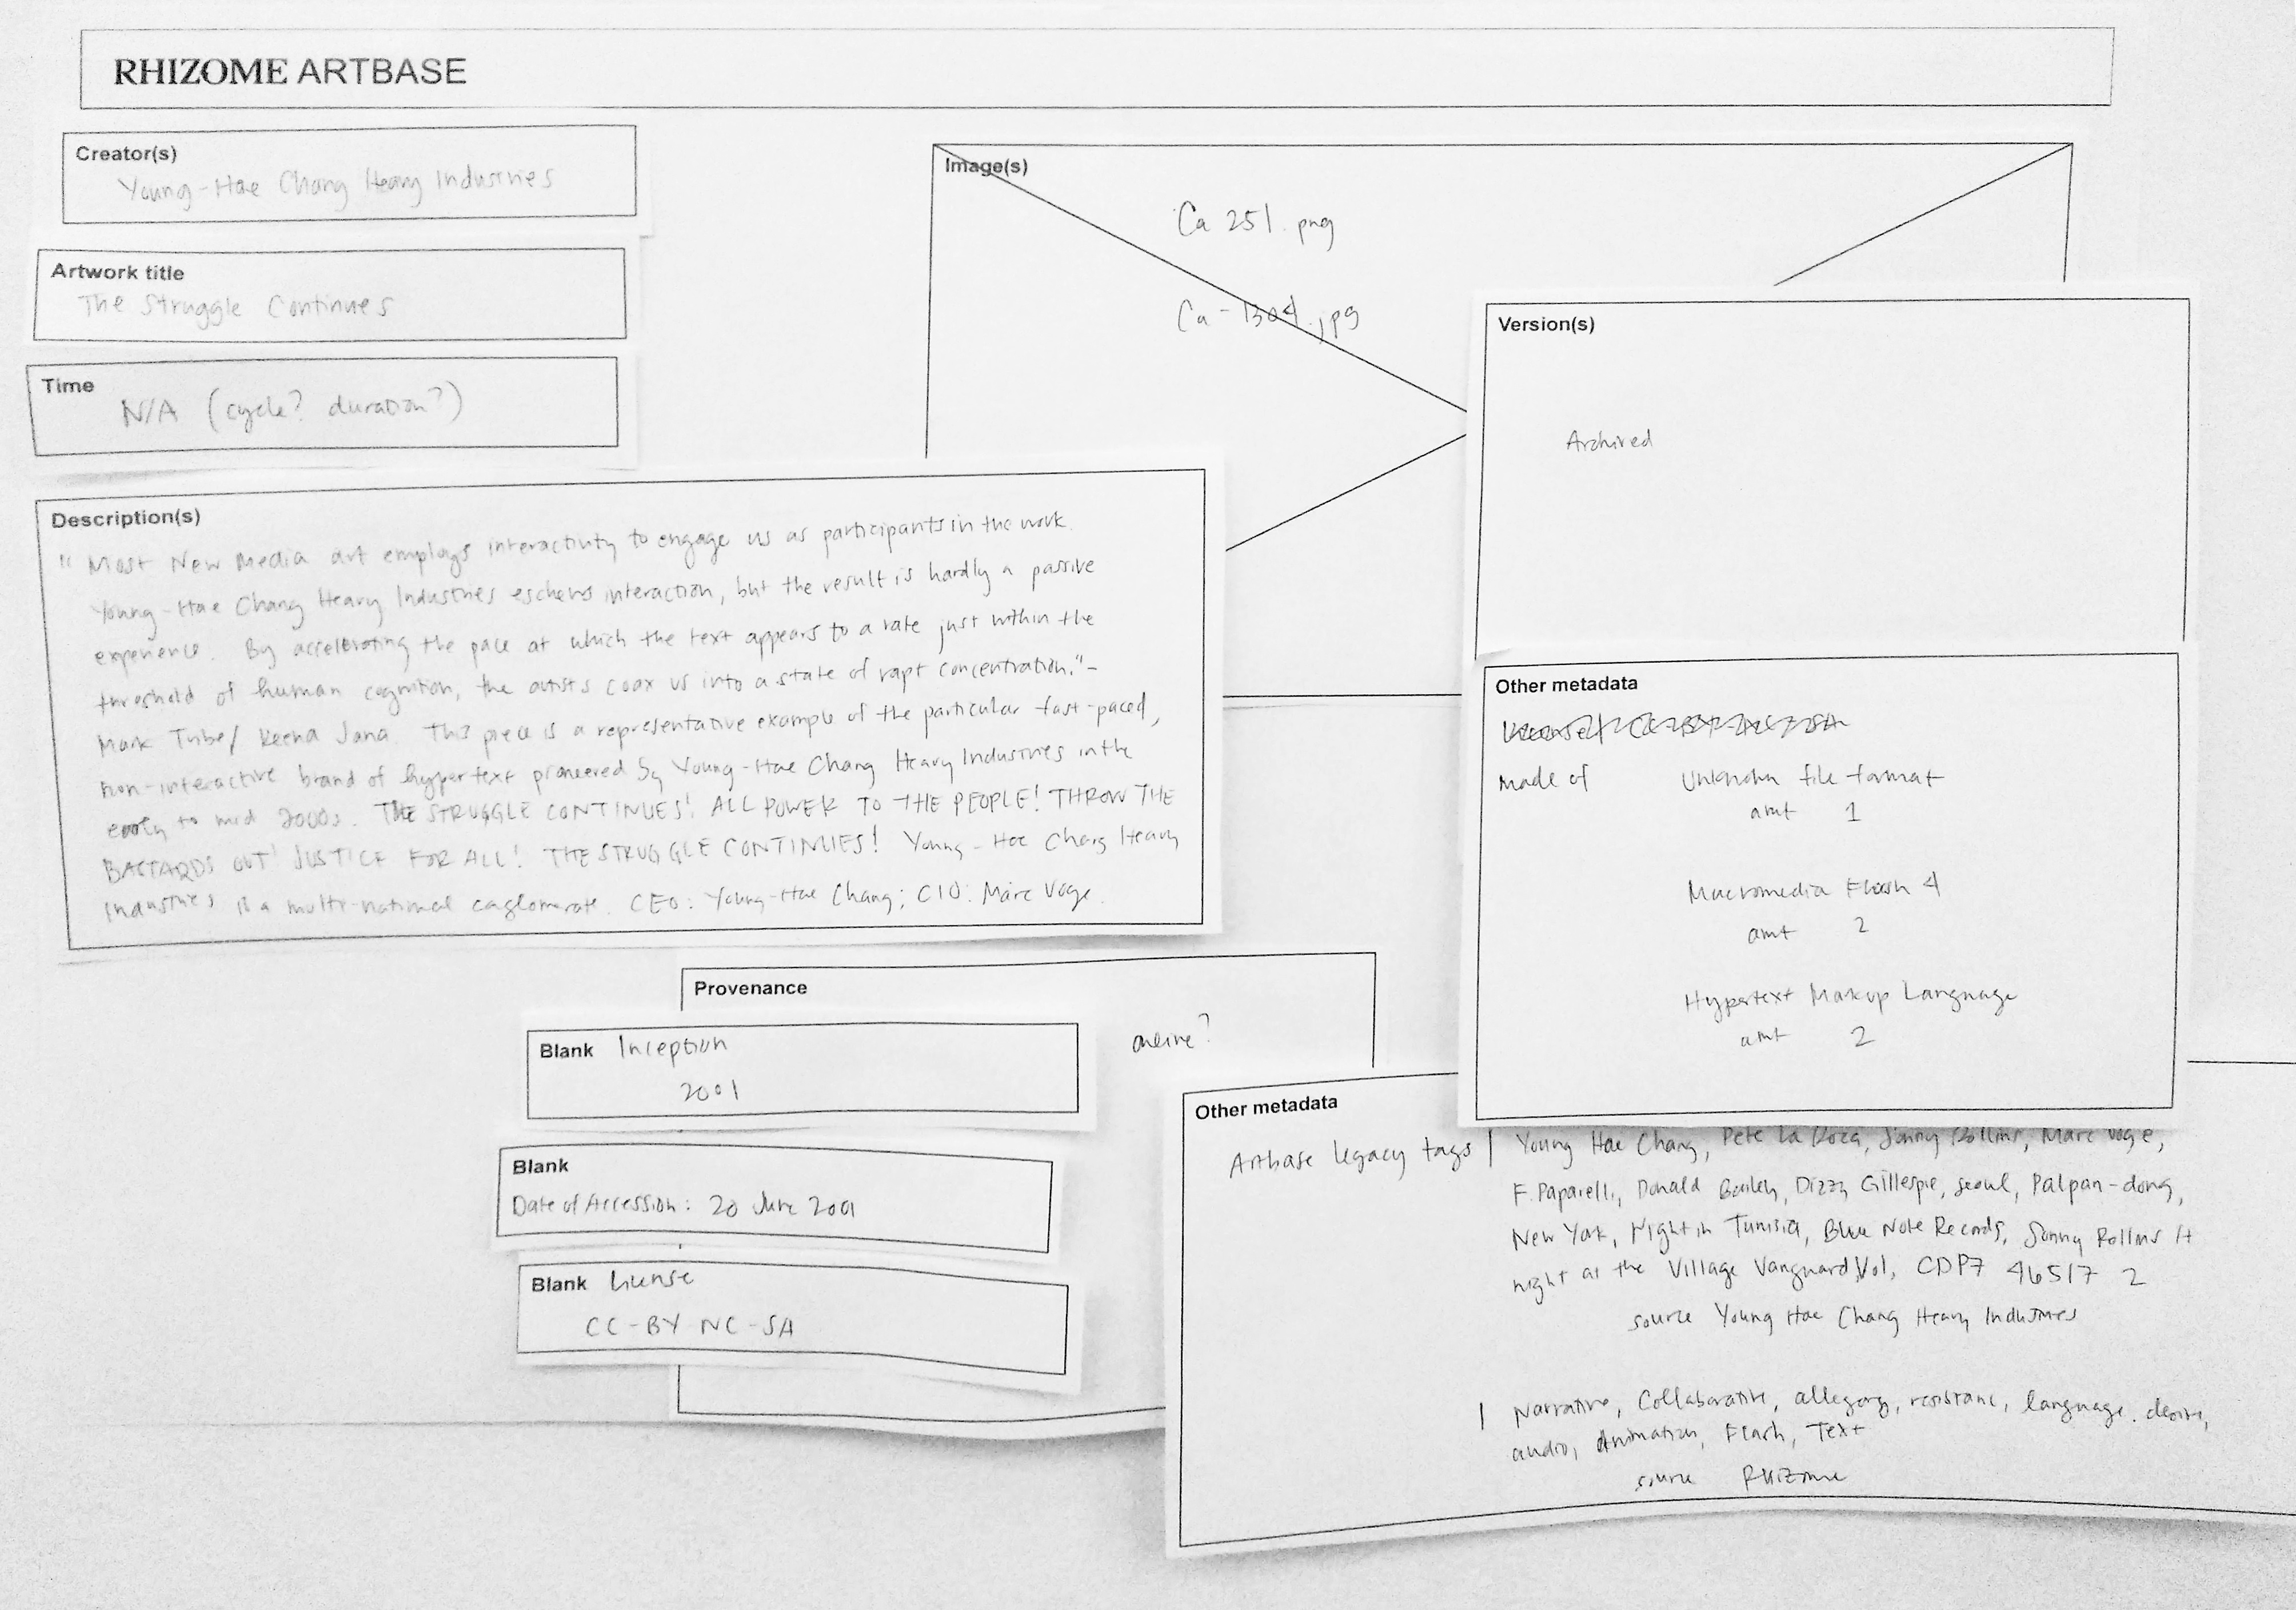 RHIZOME ARTBASE
Creator(s)
Young-Hae Chang Heavy Industries
Artwork title
The Struggle Continues
Time
N/A (cycle? duration?)
Image(s)
Ca 251.png
Ca-1304.jpg
Version(s)
Archived
Description(s)
"Most New Media art employs interactivity to engage us as participants in the work.
Young-Hae Chang Heavy Industries eschews interaction, but the result is hardly a passive
experience. By accelerating the pace at which the text appears to a rate just within the
threshold of human cognition, the artists coax us into a state of rapt concentration."-
Mark Tribe/ Reena Jana. This piece is a representative example of the particular fast-paced,
non-interactive brand of hypertext pioneered by Young-Hae Chang Heavy Industries in the
early to mid 2000s. THE STRUGGLE CONTINUES! ALL POWER TO THE PEOPLE! THROW THE
BASTARDS OUT! JUSTICE FOR ALL! THE STRUGGLE CONTINUES! Young-Hae Chang Heavy
Industries is a multi-national caglomerate. CEO: Young-Hae Chang; CIO: Marc Voge.
Other metadata
Made of Unknown file format
amt 1
Macromedia Flash 4
amt 2
Hypertext Markup Language
amt 2
Provenance
online?
Blank Inception
2001
Blank
Date of Accession: 20 June 2001
Blank License
CC-BY-NC-SA
Other metadata
Artbase legacy tags | Young Hae Chang, Pete La Roca, Sonny Rollins, Marc Voge,
F. Paparelli, Donald Bailey, Dizzy Gillespie, Seoul, Palpan-dong,
New York, Night in Tunisia, Blue Note Records, Sonny Rollins A
night at the Village Vanguard, Vol, CDP7 46517 2
source Young Hae Chang Heavy Industries
| Narrative, Collaborative, allegory, resistance, language, desire,
audio, Animation, Flash, Text
source Rhizome